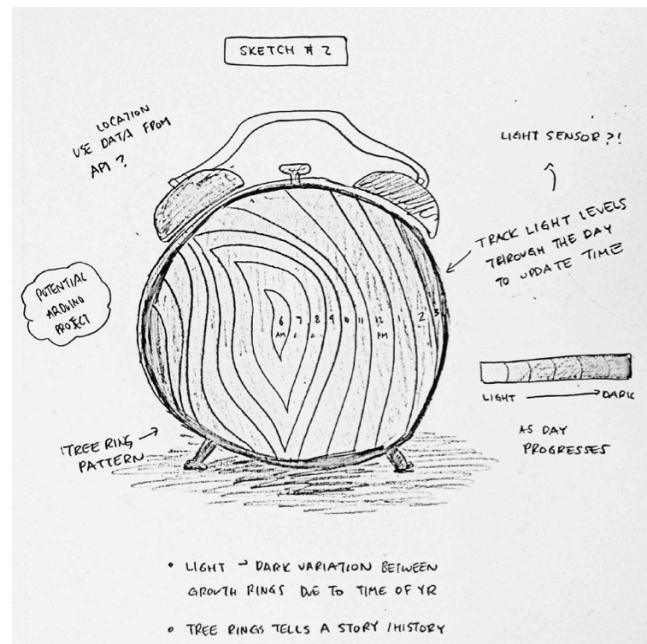 SKETCH # 2
LOCATION
USE DATA FROM
API ?
LIGHT SENSOR ?!
TRACK LIGHT LEVELS
THROUGH THE DAY
TO UPDATE TIME
POTENTIAL
ARDUINO
PROJECT
6 7 8 9 10 11 12 1 2 3
AM PM
LIGHT → DARK
AS DAY
PROGRESSES
TREE RING →
PATTERN
• LIGHT → DARK VARIATION BETWEEN
GROWTH RINGS DUE TO TIME OF YR
• TREE RINGS TELLS A STORY / HISTORY